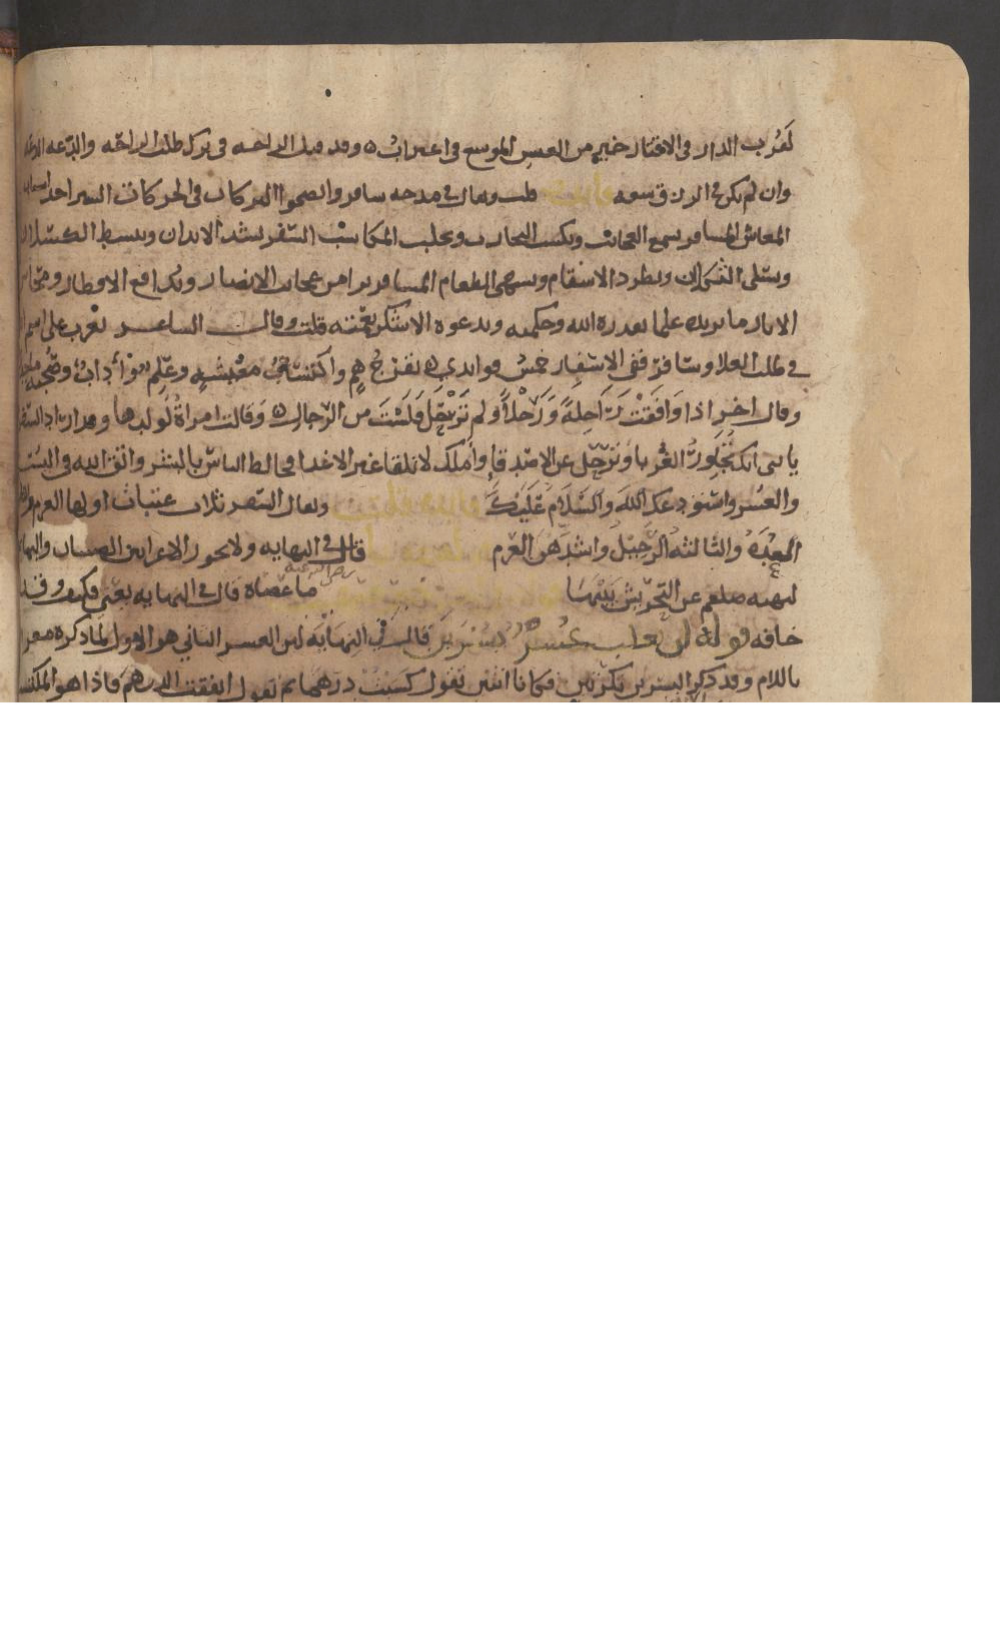 لقرب الدار في الاقتار خير من العيش الموسع في اغتراب وقد قيل الراحه في ترك طلب الراحه والدعه
وان لم يكن في الرزق سعه قلت ويقال في مدحه سافروا تصحوا البركات في الحركات السير احد اسباب
المعاش المسافر يسمع العجائب ويكسب التجارب ويجلب المكاسب السفر يشد الابدان وينشط الكسلان
ويسلي الثكلان ويطرد الاسقام ويشهي الطعام المسافر يرا من عجائب الامصار وبدائع الاقطار ومحاسن
الاثار ما يزيده علما بقدرة الله وحكمته ويدعوه الا شكر نعمته قلت وقال الشاعر تغرب على اسم
في طلب العلا وسافر ففي الاسفار خمس فوائد تفرج هم واكتساب معيشه وعلم واداب وصحبة ماجد
وقال اخر اذا وافقت راحلة ورحلا ولم ترحل فلست من الرجال وقالت امراة لولدها وقد اراد السفر
يا بني انك تجاور الغربا وترحل عن الاصدقا ولعلك لا تلقا غير الاعدا فخالط الناس بالبشر واتق الله في
والعسر واستودعك الله والسلام عليك ويقال السفر ثلاث عتبات اولها العزم
العده والثالثه الرحيل واشدهن العزم قال في النهايه ولا يجوز الاغرا بين
لنهيه صلعم عن التحريش بينهما ما عصاه قال في النهايه يعني فكيف وقد
خافه قوله لن يغلب عسر يسرين قال في النهايه لان العسر الثاني هو الاول لما ذكره معرفا
باللام وقد ذكر اليسرين نكرتين فكانا اثنين تقول كسبت درهما ثم تقول انفقت الدرهم فاذا هو